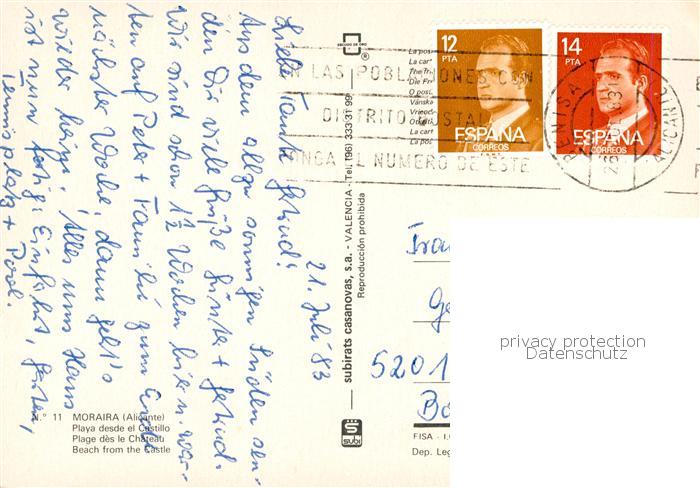 21. Juli 83
Liebe Tante Gertrud!
Aus dem allzu sonnigen Süden sen-
den Dir viele Grüße Günter + Gertrud.
Wir sind schon 1½ Wochen hier u. war-
ten auf Peter + Familie zum Ende
nächster Woche, dann geht's
wieder heim. Alles ums Haus
ist nun fertig: Einfahrt, Garten,
Tennisplatz + Pool.
N.º 11 MORAIRA (Alicante)
Playa desde el Castillo
Plage dès le Château
Beach from the Castle
subirats casanovas, s.a. - VALENCIA - Tel. (96) 333 31 99
Reproducción prohibida
ESCUDO DE ORO
®
SUBI
La pos
La car
The Tri
Die Fr
O posti
Vänska
La cart
La pos
12
PTA
ESPAÑA
CORREOS
14
PTA
ESPAÑA
CORREOS
EN LAS POBLACIONES CON
DISTRITO POSTAL
PONGA EL NUMERO DE ESTE
BENISA
ALICANTE
Frau
Ge
5201
FISA - I.
Dep. Leg
privacy protection
Datenschutz